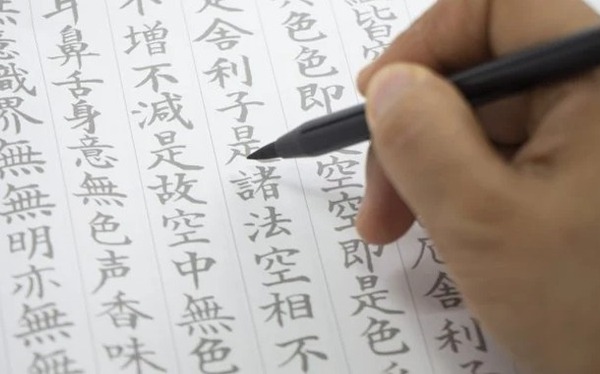 皆空厄舍利子
色色即空空即是色
是舍利子是諸法空相不
不増不減是故空中無色
耳鼻舌身意無色声香味
意識界無無明亦無無